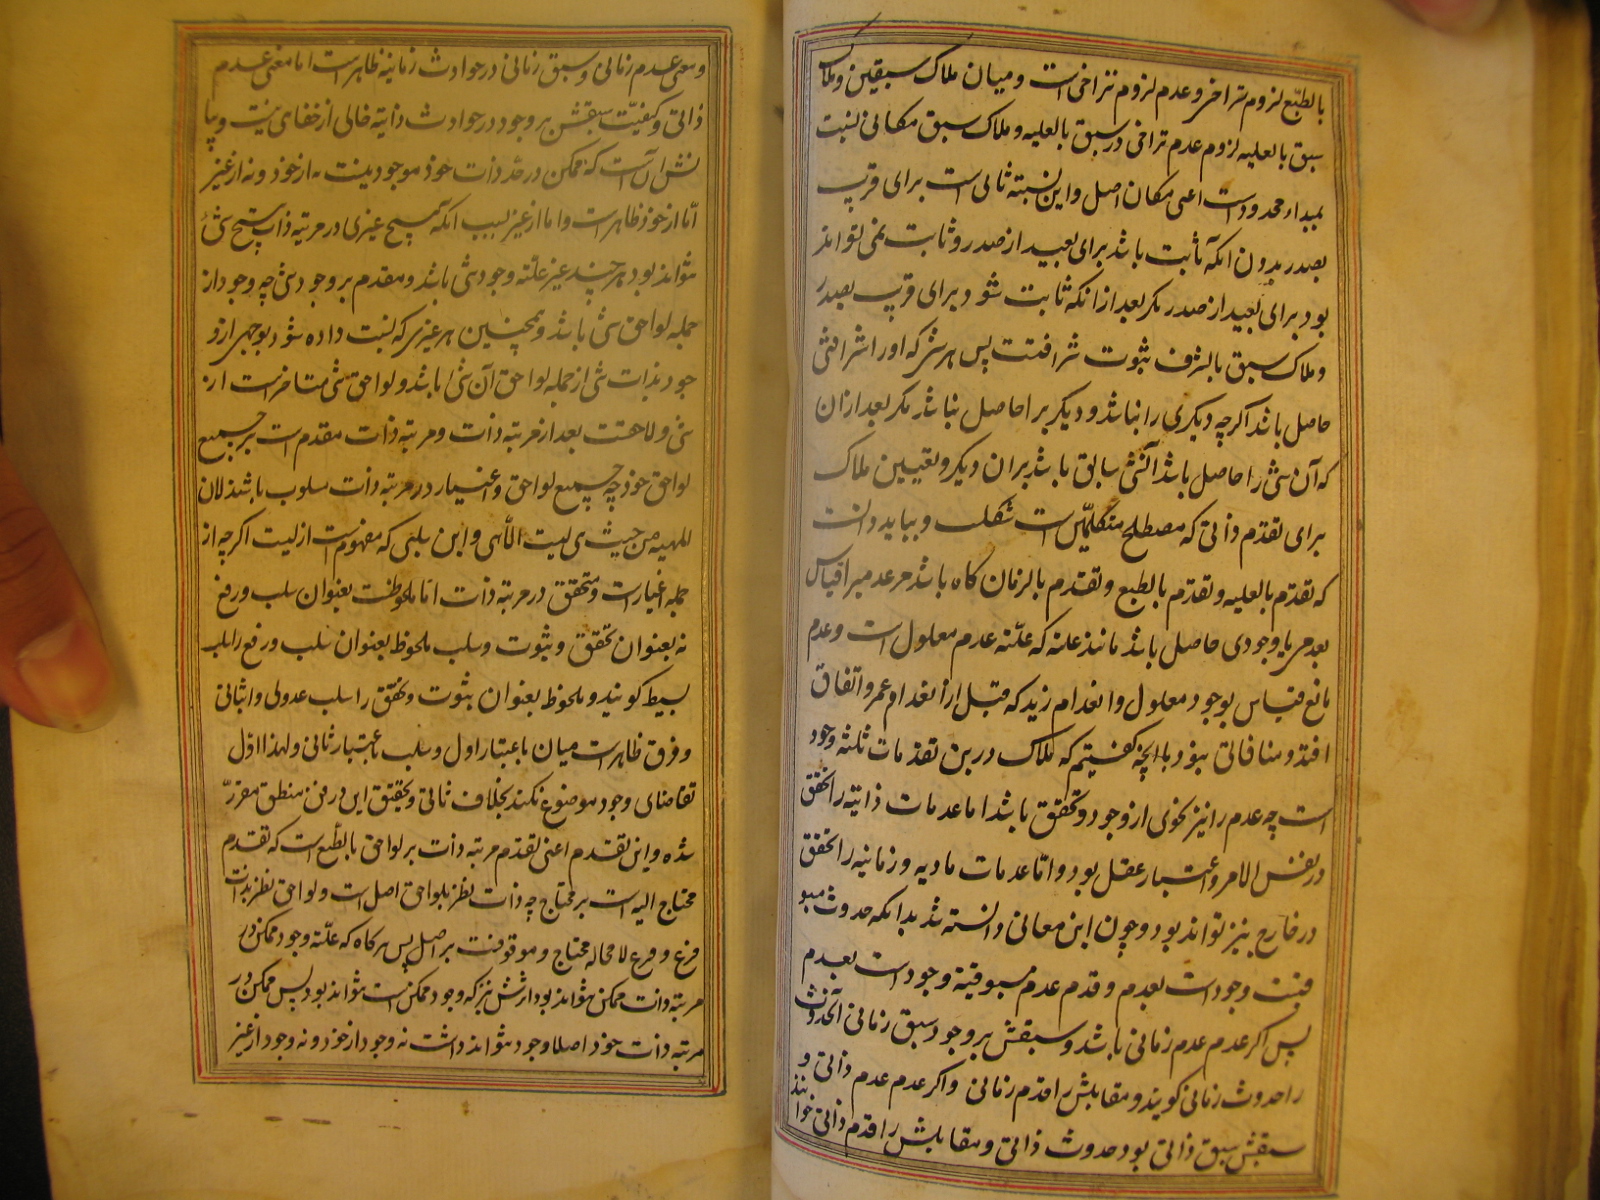 بالطبع لزوم تراخی و عدم لزوم تراخی است و میان ملاک سبقین و ملاک
سبق بالعلیه لزوم عدم تراخی در سبق بالعلیه و ملاک سبق مکانی نسبت
بمبداء محدود است اعنی مکان اصل و این نسبة ثابت است برای قریب
بصدر بدون آنکه ثابت باشد برای بعید از صدر و ثابت نمی تواند
بود برای بعید از صدر مگر بعد از آنکه ثابت شود برای قریب بصدر
و ملاک سبق بالشرف ثبوت شرافتست پس هر شئ که او را شرافتی
حاصل باشد اگرچه دیگری را نباشد و دیگر برا حاصل نباشد مگر بعد از ان
که آن شئ را حاصل باشد آن شئ سابق باشد بران دیگر و تعیین ملاک
برای تقدم ذاتی که مصطلح متکلمین است مشکلست و بباید دانست
که تقدم بالعلیه و تقدم بالطبع و تقدم بالزمان گاه باشد مر عدمیرا قیاس
بعدمی یا وجودی حاصل باشد مانند عدم علة که علة عدم معلول است و عدم
مانع قیاس بوجود معلول و انعدام زید که قبل از انعدام عمرو اتفاق
افتد و منافاتی نبود با آنچه گفتیم که ملاک درین تقدمات ثلثه وجود
است چه عدم را نیز نحوی از وجود و تحقق باشد اما عدمات ذاتیه را تحقق
در نفس الامر و اعتبار عقل بود و اما عدمات مادیه و زمانیه را تحقق
در خارج نیز تواند بود و چون این معانی دانسته شد بدانکه حدوث مسبو
قیت وجود است بعدم و قدم عدم مسبوقیة وجود است بعدم
پس اگر عدم عدم زمانی باشد و سبقش بر وجود سبق زمانی آنحدوث
را حدوث زمانی گویند و مقابلش را قدم زمانی و اگر عدم عدم ذاتی و
سبقش سبق ذاتی بود حدوث ذاتی و مقابلش را قدم ذاتی خوانند
و معنی عدم زمانی و سبق زمانی در حوادث زمانیه ظاهر است اما معنی عدم
ذاتی و کیفیت سبقش بر وجود در حوادث ذاتیه خالی از خفائی نیست و بیا
نش آنست که ممکن در حد ذات خود موجود نیست نه از خود و نه از غیر
اما از خود ظاهر است و اما از غیر بسبب آنکه هیچ غیری در مرتبه ذات هیچ شئ
نتواند بود هر چند غیر علة وجود شئ باشد و مقدم بر وجود شئ چه وجود از
جمله لواحق شئ باشد و همچنین هر غیری که نسبت داده شود بوجهی از و
جوه بذات شئ از جمله لواحق آن شئ باشد و لواحق شئ متاخر است از
شئ و لاحقست بعد از مرتبه ذات و مرتبه ذات مقدم است بر جمیع
لواحق خود چه جمیع لواحق و اغیار در مرتبه ذات مسلوب باشد لان
الماهیه من حیث هی لیست الا هی و این سلبی که مفهوم است از لیست اگرچه از
جمله اغیار است و متحقق در مرتبه ذات اما ملحوظست بعنوان سلب و رفع
نه بعنوان تحقق و ثبوت و سلب ملحوظ بعنوان سلب و رفع را سلب
بسیط گویند و ملحوظ بعنوان ثبوت و تحقق را سلب عدولی و اثباتی
و فرق ظاهر است میان باعتبار اول و سلب باعتبار ثانی و لهذا اول
تقاضای وجود موضوع نکند بخلاف ثانی و تحقیق این در فن منطق مقرر
شده و این تقدم اعنی تقدم مرتبه ذات بر لواحق بالطبع است که تقدم
محتاج الیه است بر محتاج چه ذات نظر بلواحق اصل است و لواحق نظر بذات
فرع و فرع لامحاله محتاج و موقوفست بر اصل پس هرگاه که علة وجود ممکن در
مرتبه ذات ممکن نتواند بود اثرش نیز که وجود ممکن است نتواند بود پس ممکن در
مرتبه ذات خود اصلا وجود نتواند داشت نه وجود از خود و نه وجود از غیر